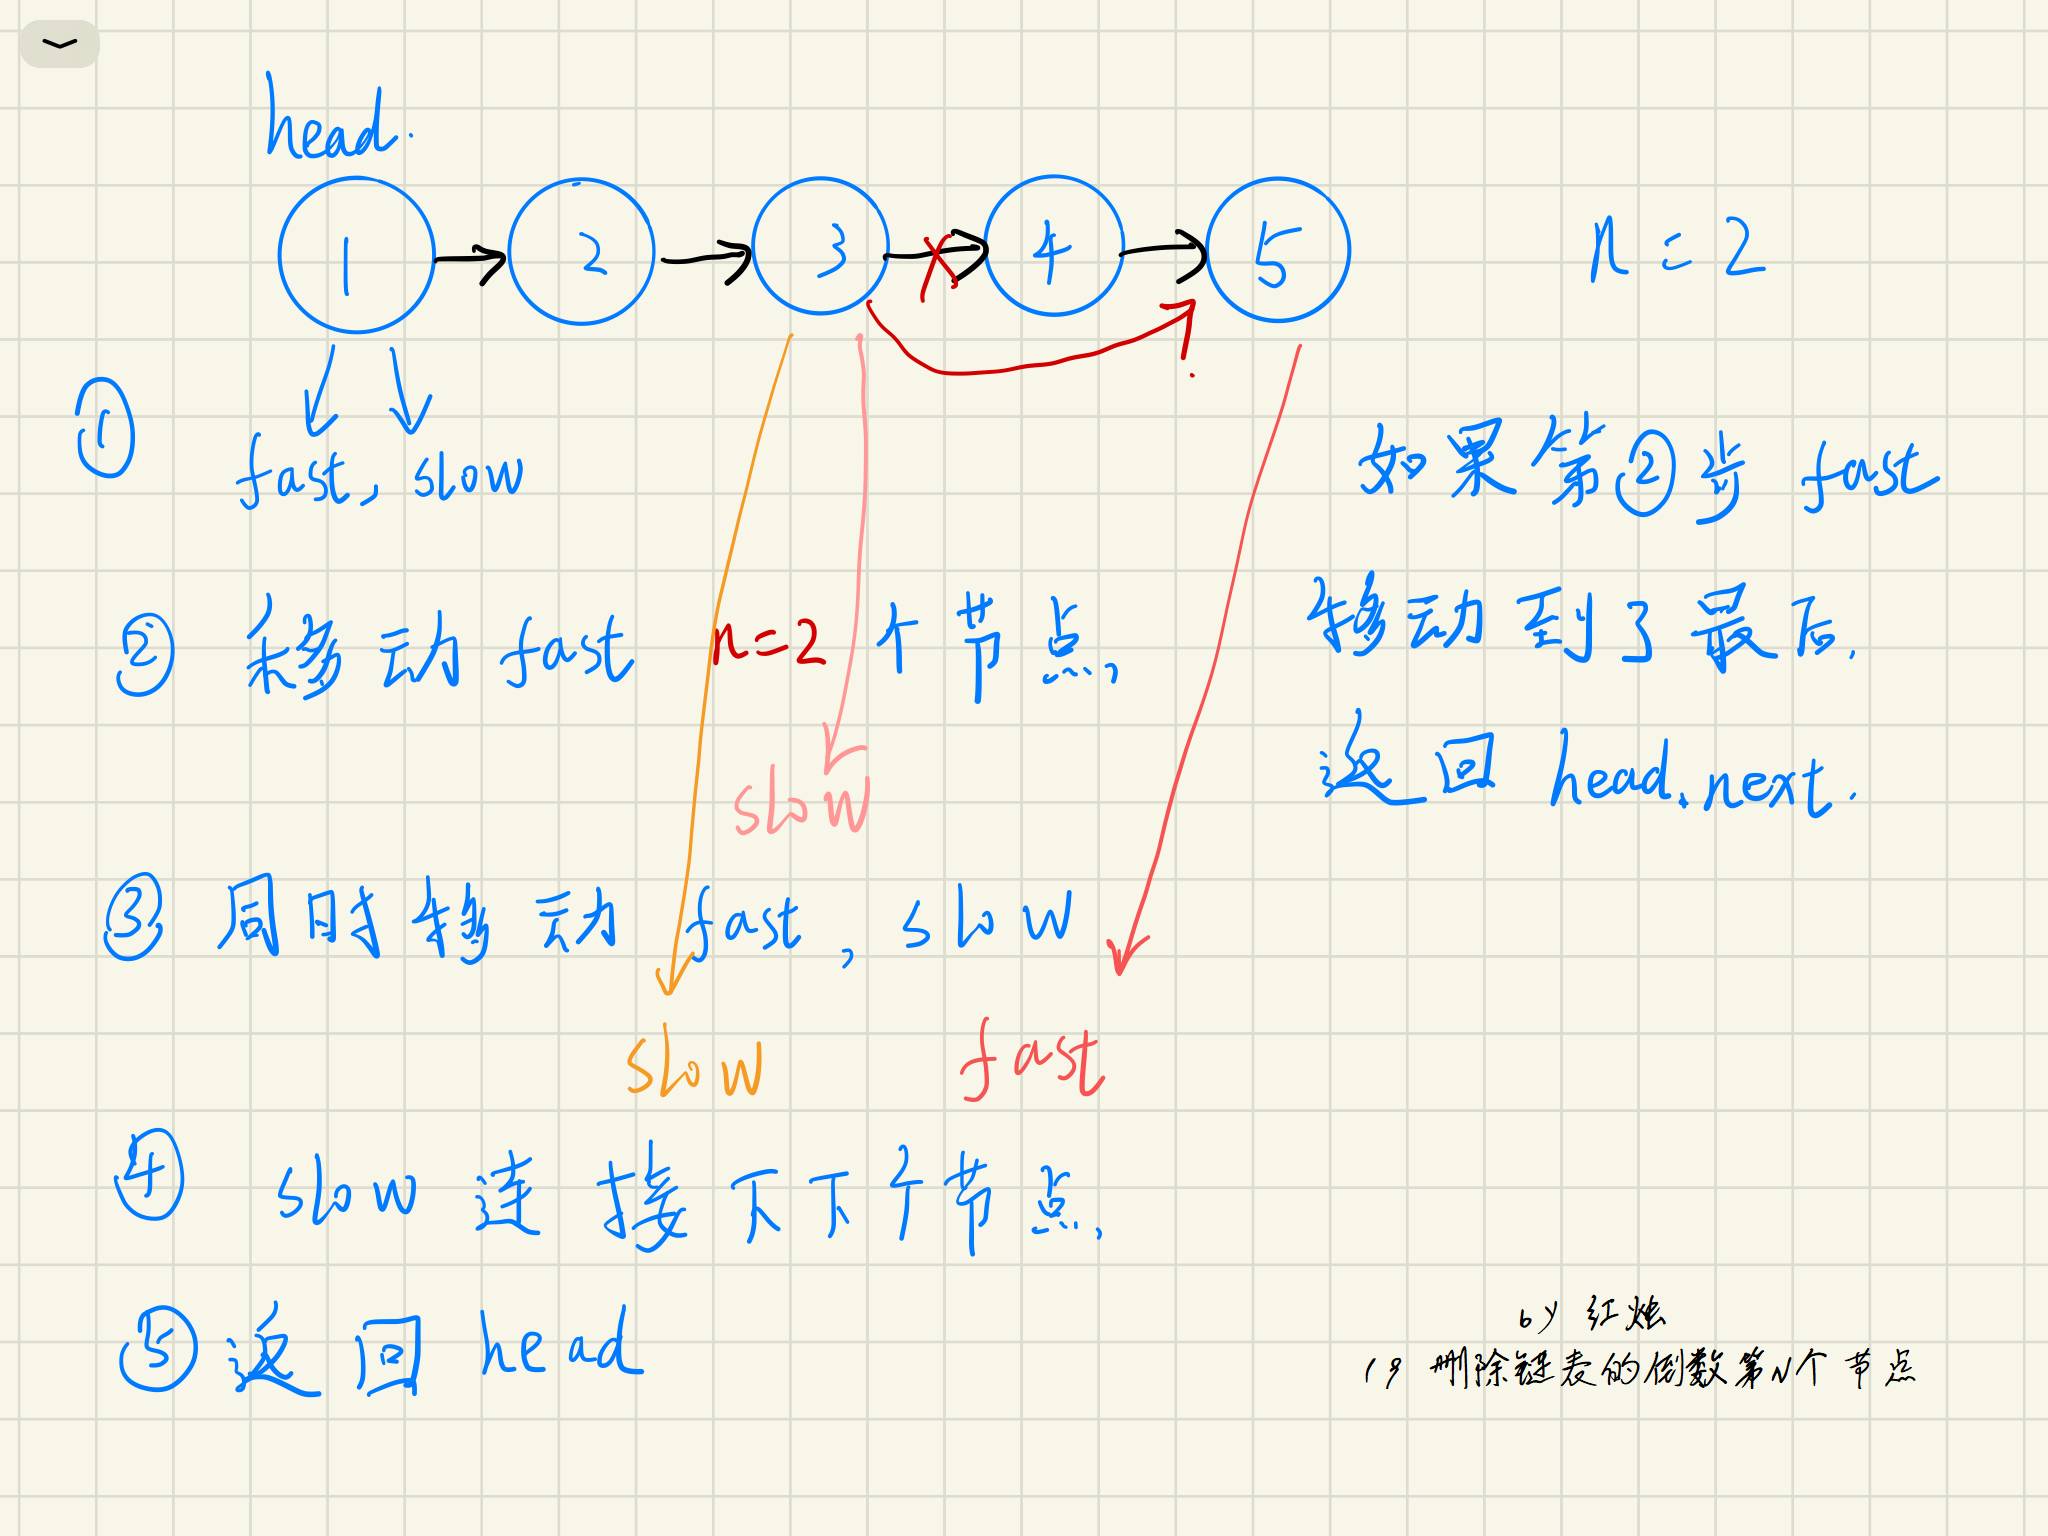 head.
1 2 3 4 5 n = 2
①
fast, slow
② 移动 fast n=2 个节点,
slow
③ 同时移动 fast, slow
slow fast
④ slow 连接下下个节点,
⑤ 返回 head
如果第②步 fast
移动到了最后.
返回 head.next.
by 红烛
19 删除链表的倒数第N个节点